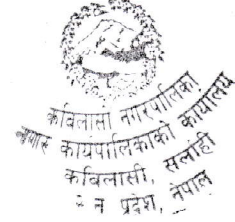 कविलासी नगरपालिका
नगर कार्यपालिकाको कार्यालय
कविलासी, सर्लाही
प्रदेश, नेपाल